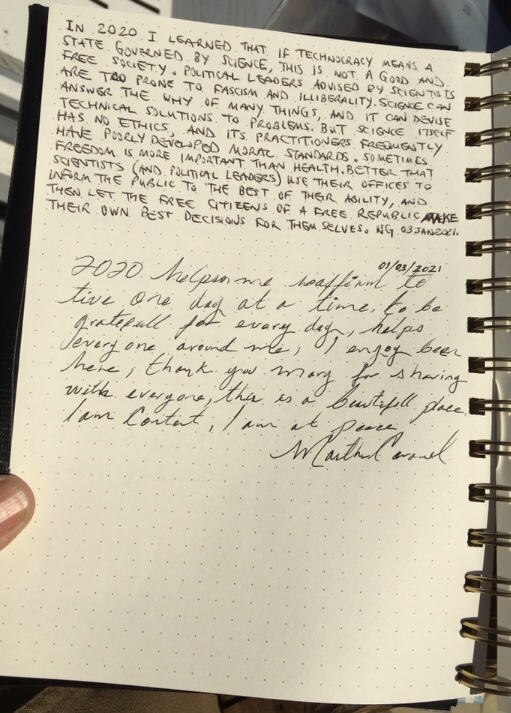 IN 2020 I LEARNED THAT IF TECHNOCRACY MEANS A
STATE GOVERNED BY SCIENCE, THIS IS NOT A GOOD AND
FREE SOCIETY. POLITICAL LEADERS ADVISED BY SCIENTISTS
ARE TOO PRONE TO FASCISM AND ILLIBERALITY. SCIENCE CAN
ANSWER THE WHY OF MANY THINGS, AND IT CAN DEVISE
TECHNICAL SOLUTIONS TO PROBLEMS. BUT SCIENCE ITSELF
HAS NO ETHICS, AND ITS PRACTITIONERS FREQUENTLY
HAVE POORLY DEVELOPED MORAL STANDARDS. SOMETIMES
FREEDOM IS MORE IMPORTANT THAN HEALTH. BETTER THAT
SCIENTISTS (AND POLITICAL LEADERS) USE THEIR OFFICES TO
INFORM THE PUBLIC TO THE BEST OF THEIR ABILITY, AND
THEN LET THE FREE CITIZENS OF A FREE REPUBLIC MAKE
THEIR OWN BEST DECISIONS FOR THEMSELVES. NG 03JAN2021.
01/03/2021
2020 helps me reaffirm to
live one day at a time, to be
gratefull for every day, helps
everyone around me, I enjoy been
here, thank you Mary for sharing
with everyone, this is a beautifull place,
I am Content, I am at peace